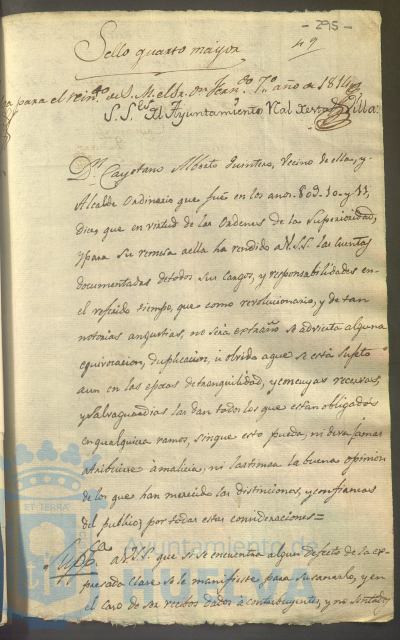 - 295 -
49
Sello quarto mayor
para el rein.do de S. M. el Sr. Dn. Fern.do 7.o año de 1814
S.S.es del Ayuntamiento Villa
Dn. Cayetano Alberto Quintero, Vecino de ella, y
Alcalde Ordinario que fué en los anos. 809. 10. y 11,
dice que en virtud de las Ordenes de la Superioridad,
y para su remesa a ella ha rendido a V.SS. las Cuentas
documentadas de todos sus cargos, y responsabilidades en
el referido tiempo, que como revolucionario, y de tan
notorias angustias, no será extraño se advierta alguna
equivocacion, duplicacion, u olvido a que se está sujeto
aun en las epocas de tranquilidad, y en cuyas recursas,
y Salvaguardias las dan todos los que estan obligados
en qualquiera ramos, sin que esto pueda, ni deva jamas
atribuirse à malicia, ni lastimar la buena opinion
de los que han merecido las distinciones, y confianzas
del publico; por todas estas consideraciones=
Supp.ca a V.SS. que si se encuentra algun defecto de la ex
presada clase se le manifieste para subsanarlo, y en
el caso de ser recibos dados à contribuyentes, y no sentados
ET TERRÆ
Ayuntamiento de
HUELVA